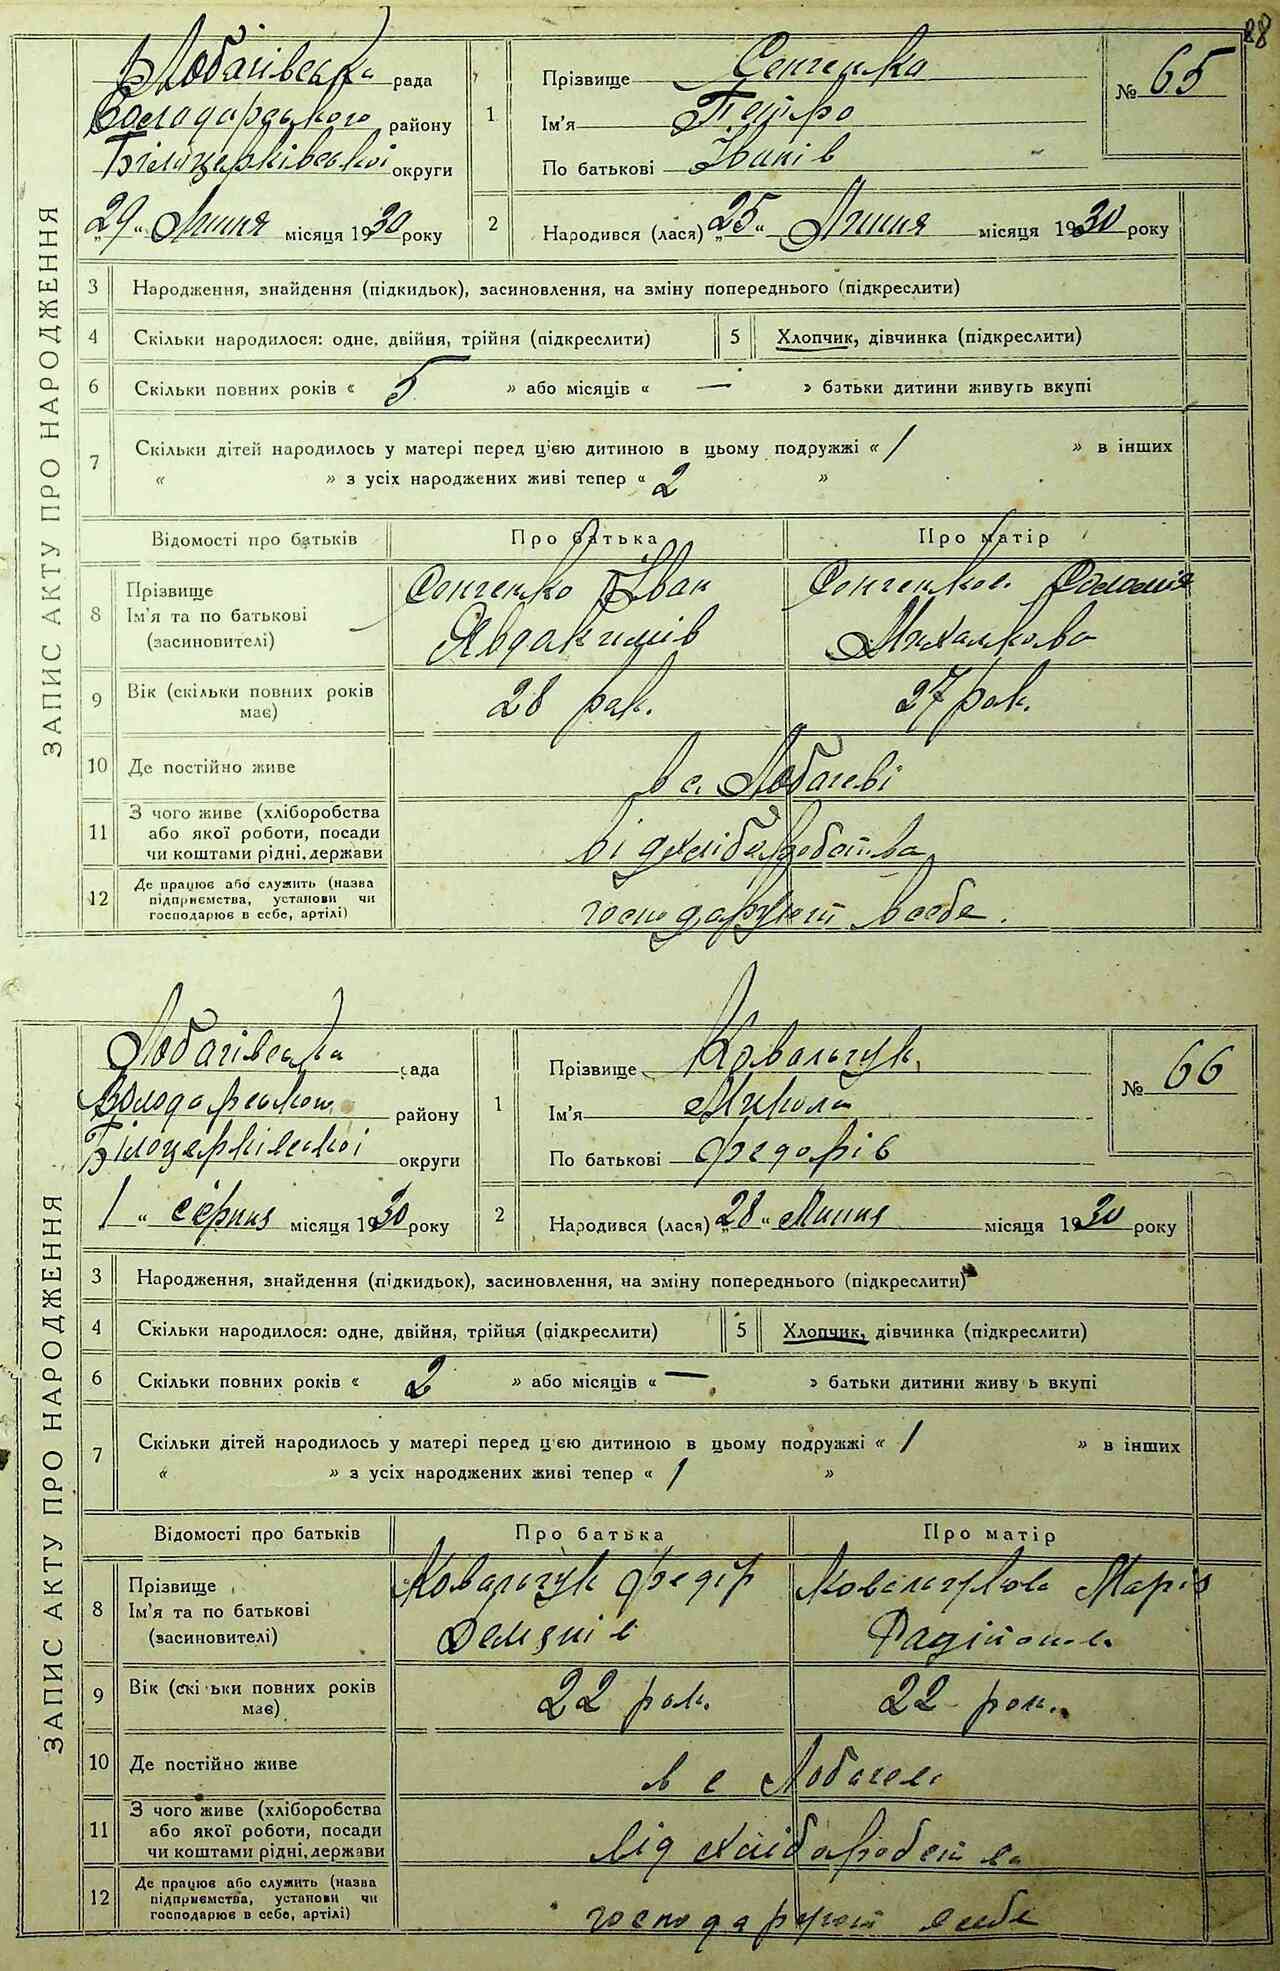 88
ЗАПИС АКТУ ПРО НАРОДЖЕННЯ
Лобачівська рада
Володарського району
Білоцерківської округи
„29“ Липня місяця 1930 року
1
Прізвище Сенченко
Ім'я Петро
По батькові Іванів
№ 65
2
Народився (лася) „25“ Липня місяця 1930 року
3 Народження, знайдення (підкидьок), засиновлення, на зміну попереднього (підкреслити)
4 Скільки народилося: одне, двійня, трійня (підкреслити) 5 Хлопчик, дівчинка (підкреслити)
6 Скільки повних років « 5 » або місяців « — » батьки дитини живуть вкупі
7 Скільки дітей народилось у матері перед цією дитиною в цьому подружжі « 1 » в інших
« » з усіх народжених живі тепер « 2 »
Відомості про батьків Про батька Про матір
8 Прізвище
Ім'я та по батькові
(засиновителі)
Сенченко Іван
Явдакимів
Сенченкова Соломія
Михалкова
9 Вік (скільки повних років
має)
28 рок. 27 рок.
10 Де постійно живе в с. Лобачеві
11 З чого живе (хліборобства
або якої роботи, посади
чи коштами рідні, держави
від хліборобства
12 Де працює або служить (назва
підприємства, установи чи
господарює в себе, артілі)
господарують в себе.
ЗАПИС АКТУ ПРО НАРОДЖЕННЯ
Лобачівська рада
Володарського району
Білоцерківської округи
1 “ серпня місяця 1930 року
1
Прізвище Ковальчук
Ім'я Микола
По батькові Федорів
№ 66
2
Народився (лася) „28“ Липня місяця 1930 року
3 Народження, знайдення (підкидьок), засиновлення, на зміну попереднього (підкреслити)
4 Скільки народилося: одне, двійня, трійня (підкреслити) 5 Хлопчик, дівчинка (підкреслити)
6 Скільки повних років « 2 » або місяців « — » батьки дитини живуть вкупі
7 Скільки дітей народилось у матері перед цією дитиною в цьому подружжі « 1 » в інших
« » з усіх народжених живі тепер « 1 »
Відомості про батьків Про батька Про матір
8 Прізвище
Ім'я та по батькові
(засиновителі)
Ковальчук Федір
Демянів
Ковальчукова Марія
Радійонова
9 Вік (скільки повних років
має)
22 рок. 22 рок.
10 Де постійно живе в с Лобачеві
11 З чого живе (хліборобства
або якої роботи, посади
чи коштами рідні, держави
від хліборобства
12 Де працює або служить (назва
підприємства, установи чи
господарює в себе, артілі)
господарують в себе